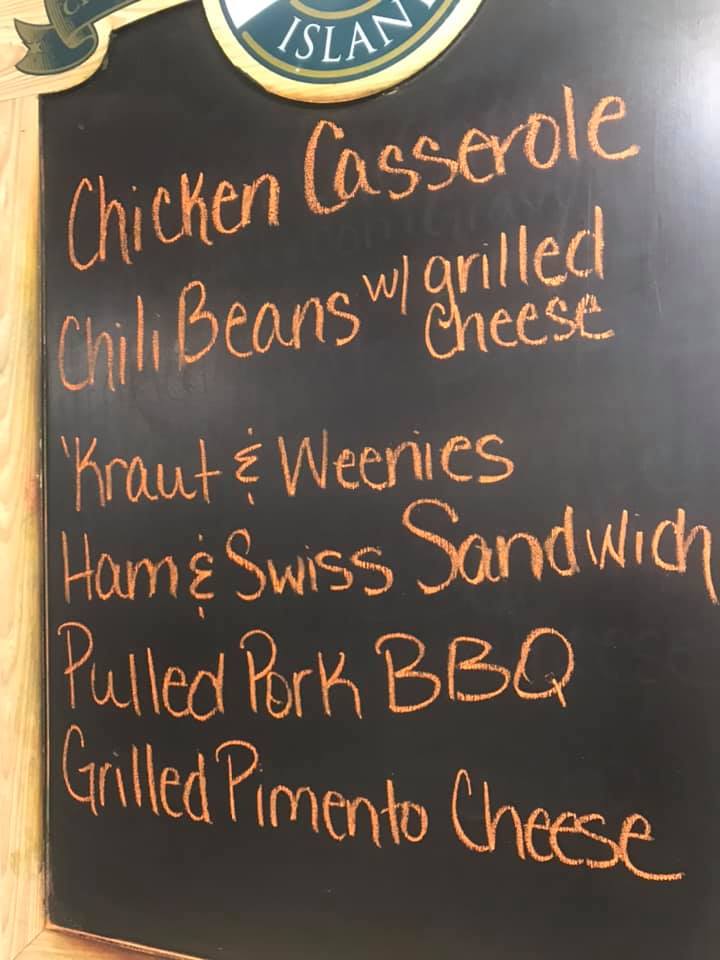 ISLAN
Chicken Casserole
Chili Beans w/ grilled
cheese
'Kraut & Weenies
Ham & Swiss Sandwich
Pulled Pork BBQ
Grilled Pimento Cheese